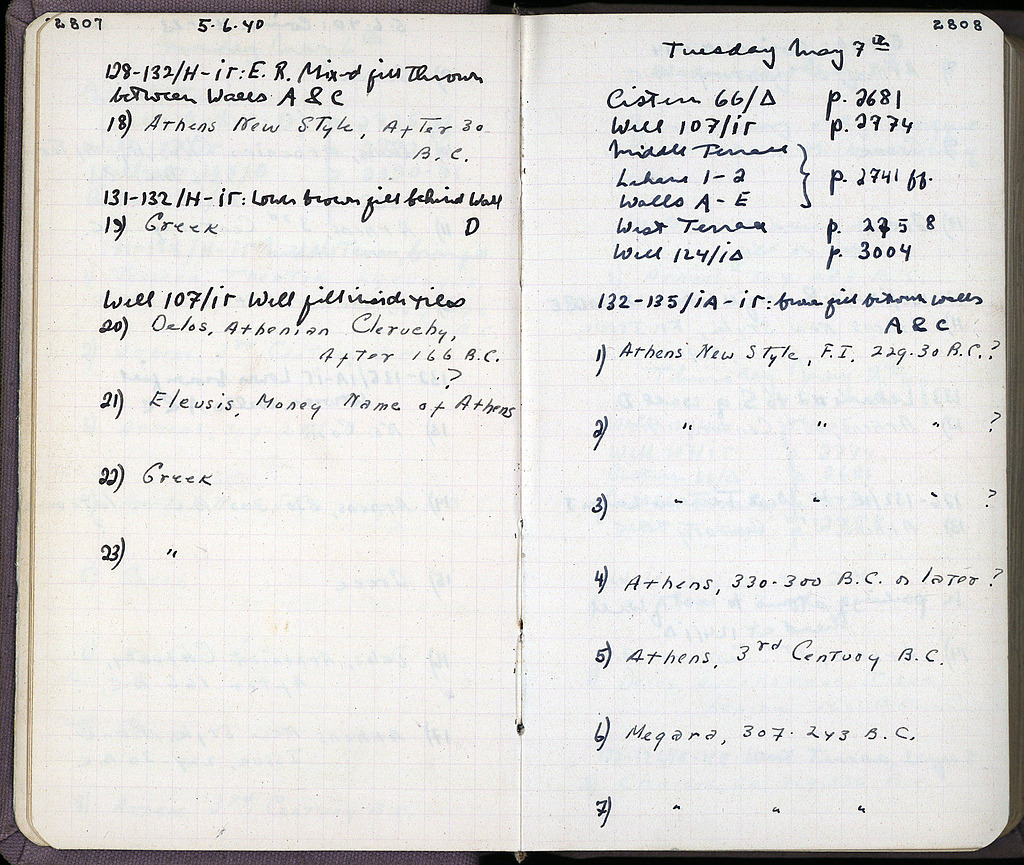 2807
5-6-40
128-132/H-ΙΓ: E. R. Mixed fill thrown
between Walls A & C
18) Athens New Style, After 30
B.C.
131-132/H-ΙΓ: Lower brown fill behind Wall
19) Greek D
Well 107/ΙΓ Well fill inside tiles
20) Delos, Athenian Cleruchy,
After 166 B.C.
?
21) Eleusis, Money Name of Athens
22) Greek
23) "
2808
Tuesday May 7th
Cistern 66/Δ p. 2681
Well 107/ΙΓ p. 2774
Middle Terrace
Lakans 1-2 p. 2741 ff.
Walls A-E
West Terrace p. 2758
Well 124/ΙΔ p. 3004
132-135/ΙΑ-ΙΓ: brown fill between walls
A & C
1) Athens New Style, F.I. 229-30 B.C.?
2) " " " ?
3) " " " ?
4) Athens, 330-300 B.C. or later?
5) Athens, 3rd Century B.C.
6) Megara, 307-243 B.C.
7) " " "